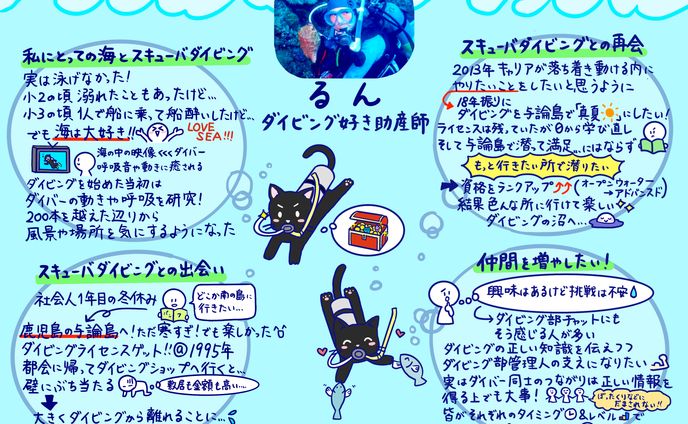 る ん
ダイビング好き助産師
私にとっての海とスキューバダイビング
実は泳げなかった!
小2の頃 溺れたこともあったけど…
小3の頃 1人で船に乗って船酔いしたけど…
でも 海は大好き!!
LOVE
SEA!!!
海の中の映像<<<ダイバー
呼吸音や動きに癒される
ダイビングを始めた当初は
ダイバーの動きや呼吸を研究!
200本を越えた辺りから
風景や場所を気にするようになった
スキューバダイビングとの出会い
社会人1年目の冬休み
どこか南の島に
行きたい…
鹿児島の与論島へ!ただ寒すぎ!でも楽しかった
ダイビングライセンスゲット!!@1995年
都会に帰ってダイビングショップへ行くと…
壁にぶち当たる
敷居も金額も高い…
大きくダイビングから離れることに…
スキューバダイビングとの再会
2013年 キャリアが落ち着き動ける内に
やりたいことをしたいと思うように
18年振りに
ダイビングを与論島で「真夏」にしたい!
ライセンスは残っていたが0から学び直し
そして与論島で潜って満足…にはならず
もっと行きたい所で潜りたい
資格をランクアップ↑↑(オープンウォーター
→アドバンスド)
結果色んな所に行けて楽しい
ダイビングの沼へ…
仲間を増やしたい!
興味はあるけど挑戦は不安
ダイビング部チャットにも
そう感じる人が多い
ダイビングの正しい知識を伝えつつ
ダイビング部管理人の支えになりたい
実はダイバー同士のつながりは正しい情報を
得る上でも大事!
ぼったくりなどに
だまされない!!
皆がそれぞれのタイミング&レベルで